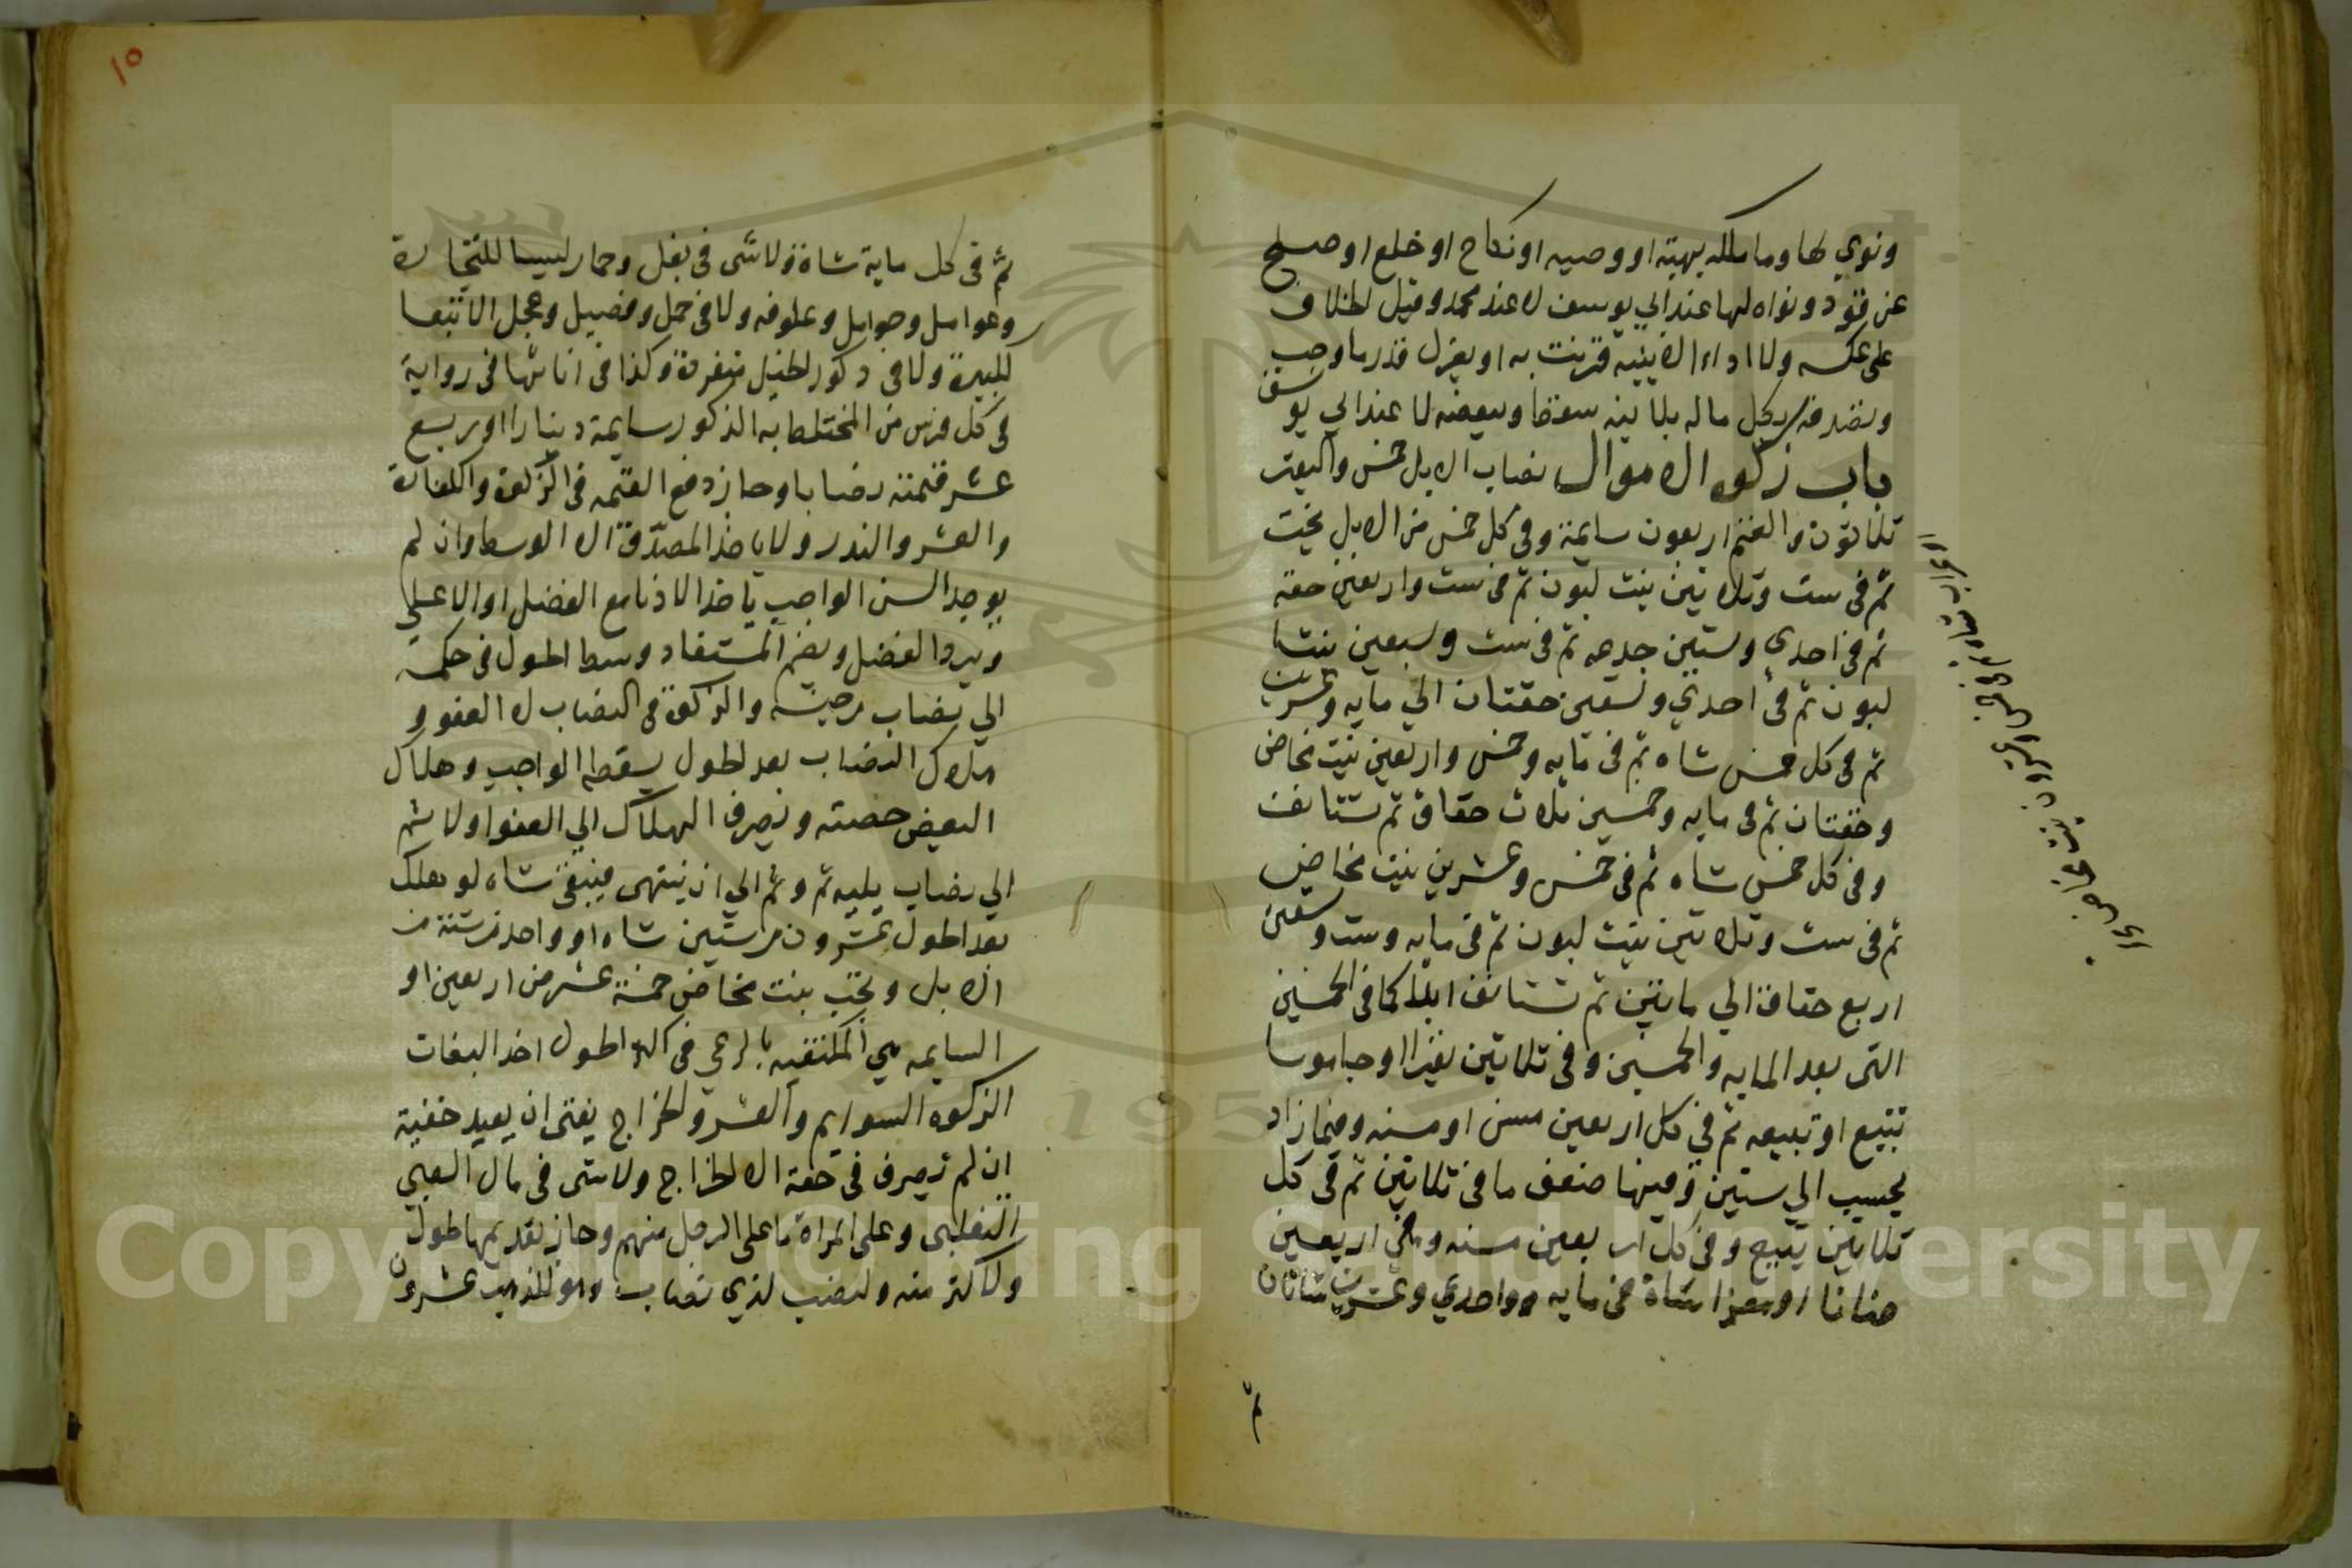 ونوي لها وما ملكه بهبة او وصيه او نكاح او خلع او صلح
عن قود ونواه لها عند ابي يوسف لا عند محمد وقيل الخلاف
على عكسه ولا اداء الا بنيه قرنت به او بعزل قدر ما وجب
وتصدقه بكل ماله بلا نيه سقط وببعضه لا عند ابي يوسف
باب زكوه الاموال نصاب الابل خمس والبقر
ثلاثون والغنم اربعون سايمة وفي كل خمس من الابل بخت
ثم في ست وثلاثين بنت لبون ثم في ست واربعين حقه
ثم في احدي وستين جدعه ثم في ست وسبعين بنتا
لبون ثم في احدي وتسعين حقتان الي مايه وعشرين
ثم في كل خمس شاه ثم في مايه وخمس واربعين بنت مخاض
وحقتان ثم في مايه وخمسين ثلاث حقاق ثم تستانف
وفي كل خمس شاه ثم في خمس وعشرين بنت مخاض
ثم في ست وثلاثين بنت لبون ثم في مايه وست وتسعين
اربع حقاق الي مايتين ثم تستانف ابدا كما في الخمسين
التي بعد المايه والخمسين وفي ثلاثين بقرا او جاموسا
تبيع او تبيعه ثم في كل اربعين مسن او مسنه وفيما زاد
يحسب الي ستين وفيها ضعف ما في ثلاثين ثم في كل
ثلاثين تبيع وفي كل اربعين مسنه وفي اربعين
ضانا او معزا شاة في مايه وواحدي وعشرين شاتان
ثم
١٥
ثم في كل ماية شاة ولا شى في بغل وحمار ليسا للتجارة
وعوامل وحوامل وعلوفه ولا في حمل وفصيل وعجل الا تبعا
للكبيرة ولا في ذكور الخيل منفردة وكذا في اناثها في رواية
في كل فرس من المختلط به الذكور سايمة دينارا او ربع
عشر قيمته نصابا وجاز دفع القيمه في الزكوة والكفارة
والعشر والندر ولا ياخذ المصدق الا الوسط وان لم
يوجد السن الواجب ياخذ الادنا مع الفضل او الاعلي
ويرد الفضل ويضم المستفاد وسط الحول في حكمه
الي نصاب من جنسه والزكوة في النصاب لا العفو و
هلاك النصاب بعد الحول يسقط الواجب وهلاك
البعض حصته ويصرف الهلاك الي العفو اولا ثم
الي نصاب يليه ثم وثم الي ان ينتهى فتبقى شاه لو هلك
بعد الحول عشرون من ستين شاه او واحد من ستة من
الابل وتجب بنت مخاض خمسة عشر من اربعين او
السايمه هي المكتفيه بالرعي في اكثر الحول اخذ البغات
الزكوه السوايم والعشر والخراج يفتى ان يعيد خفية
ان لم تصرف في حقة الا الخراج ولا شى في مال الصبي
التغلبى وعلى المراة ما على الرجل منهم وجاز تقديمها لحول
ولاكثر منه ولنصب لذي نصاب وهو للذهب عشرون